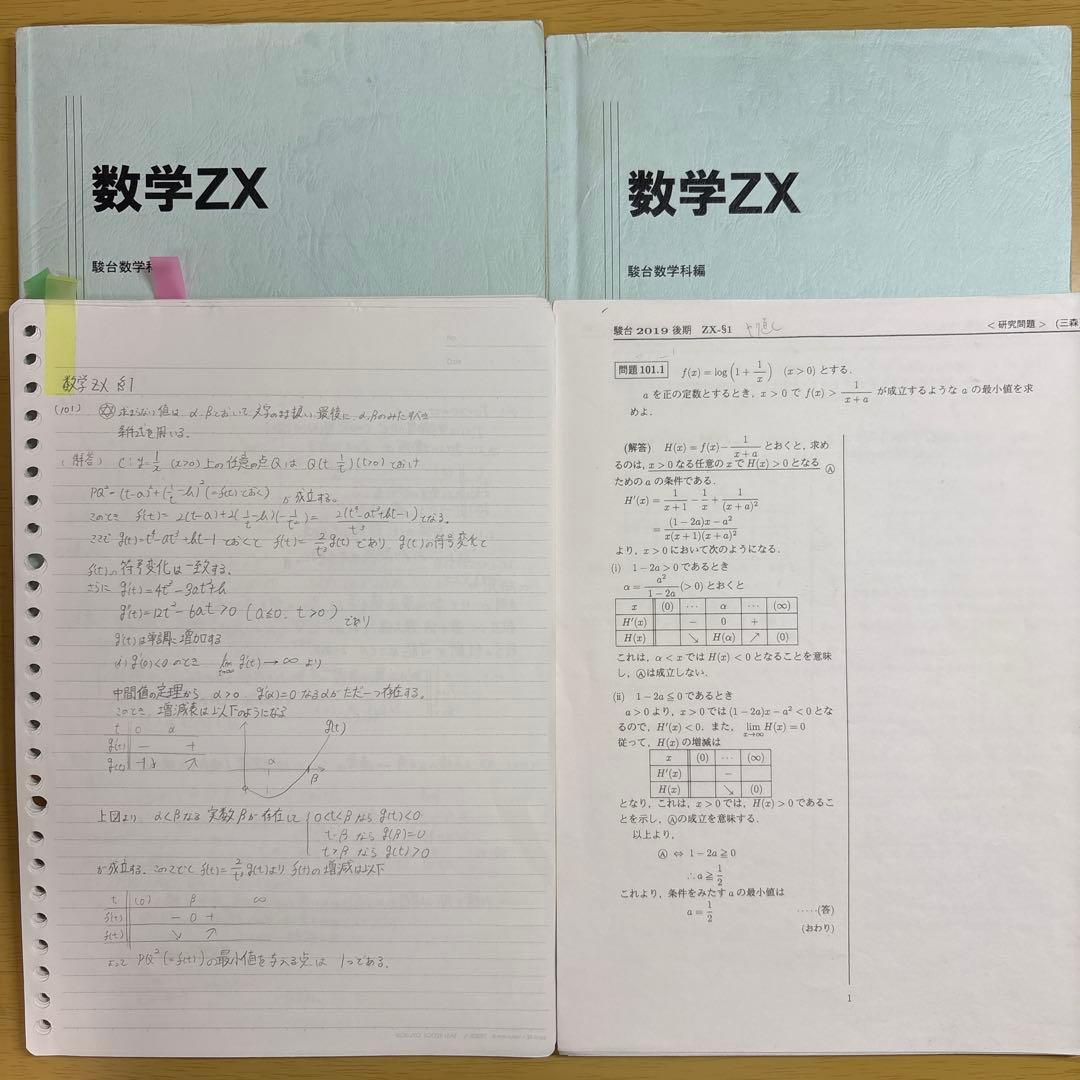 数学ZX
駿台数学科
数学ZX
駿台数学科編
No.
Date
数学ZX §1
(101) 求まらない値は、α、βとおいて文字のまま扱い最後に、α、βのみたすべき
条件式を用いる。
(解答) C: y=1/x (x>0)上の任意の点Qは Q(t, 1/t)(t>0)とおけ
PQ²=(t-a)²+(1/t-h)² (=f(t)とおく) が成立する。
このとき f'(t)= 2(t-a)+2(1/t-h)(-1/t²)= 2(t⁴-at³+ht-1)/t³ となる。
ここで g(t)=t⁴-at³+ht-1 とおくと f'(t)= 2/t³ g(t) であり、g(t)の符号変化と
f'(t)の符号変化は一致する。
さらに g'(t)=4t³-3at²+h
g''(t)=12t²-6at>0 (a≦0, t>0) であり
g'(t)は単調に増加する
g'(0)<0のとき lim t→∞ g'(t)→∞ より
中間値の定理から、α>0, g'(α)=0なるαがただ一つ存在する。
このとき、増減表は以下のようになる
t 0 α
g'(t) - +
g(t) -1 ↘ ↗
g(t)
α
β
上図より α<βなる実数βが存在して 0<t<βなら g(t)<0
t=βなら g(β)=0
t>βなら g(t)>0
が成立する。このことと f'(t)=2/t³ g(t)より f(t)の増減は以下
t (0) β ∞
f'(t) - 0 +
f(t) ↘ ↗
よって PQ²(=f(t))の最小値を与える点は 1つである。
駿台 2019 後期 ZX-§1 <研究問題> (三森
問題 101.1 f(x) = log(1 + 1/x) (x > 0) とする.
a を正の定数とするとき, x > 0 で f(x) > 1/(x+a) が成立するような a の最小値を求
めよ.
(解答) H(x) = f(x) - 1/(x+a) とおくと, 求め
るのは, x > 0 なる任意の x で H(x) > 0 となる Ⓐ
ための a の条件である.
H'(x) = 1/(x+1) - 1/x + 1/(x+a)²
= ((1-2a)x - a²)/(x(x+1)(x+a)²)
より, x > 0 において次のようになる.
(i) 1 - 2a > 0 であるとき
α = a²/(1-2a) (> 0) とおくと
x (0) ⋯ α ⋯ (∞)
H'(x) - 0 +
H(x) ↘ H(α) ↗ (0)
これは, α < x では H(x) < 0 となることを意味
し, Ⓐは成立しない.
(ii) 1 - 2a ≦ 0 であるとき
a > 0 より, x > 0 では (1-2a)x - a² < 0 とな
るので, H'(x) < 0. また, lim x→∞ H(x) = 0
従って, H(x) の増減は
x (0) ⋯ (∞)
H'(x) -
H(x) ↘ (0)
となり, これは, x > 0 では, H(x) > 0 であるこ
とを示し, Ⓐの成立を意味する.
以上より,
Ⓐ ⇔ 1 - 2a ≦ 0
∴ a ≧ 1/2
これより, 条件をみたす a の最小値は
a = 1/2 ⋯⋯(答)
(おわり)
1